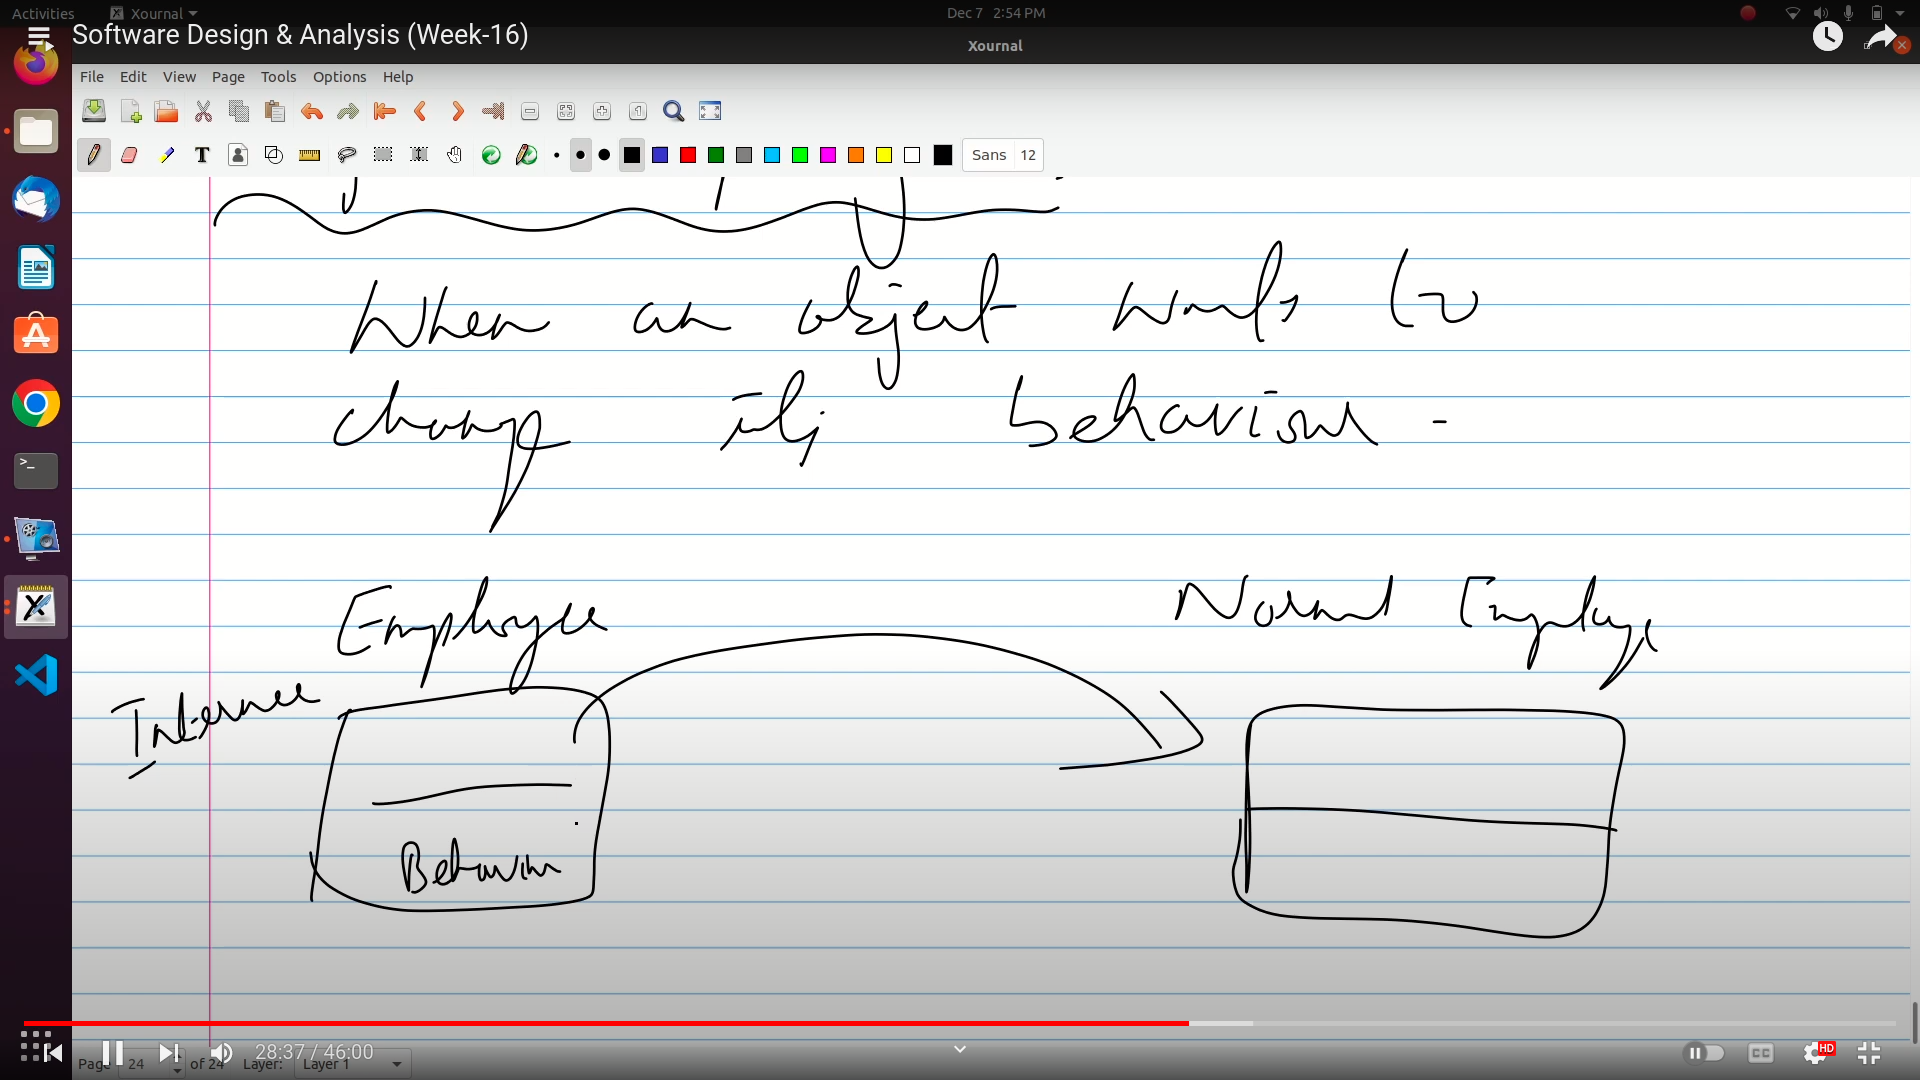 Activities Xournal Dec 7 2:54 PM
Software Design & Analysis (Week-16)
Xournal
File Edit View Page Tools Options Help
Sans 12
When an object wants to
change its behaviour -
Employee Normal Employee
Internee
Behaviour
28:37 / 46:00
Page 24 of 24 Layer: Layer 1
CC HD